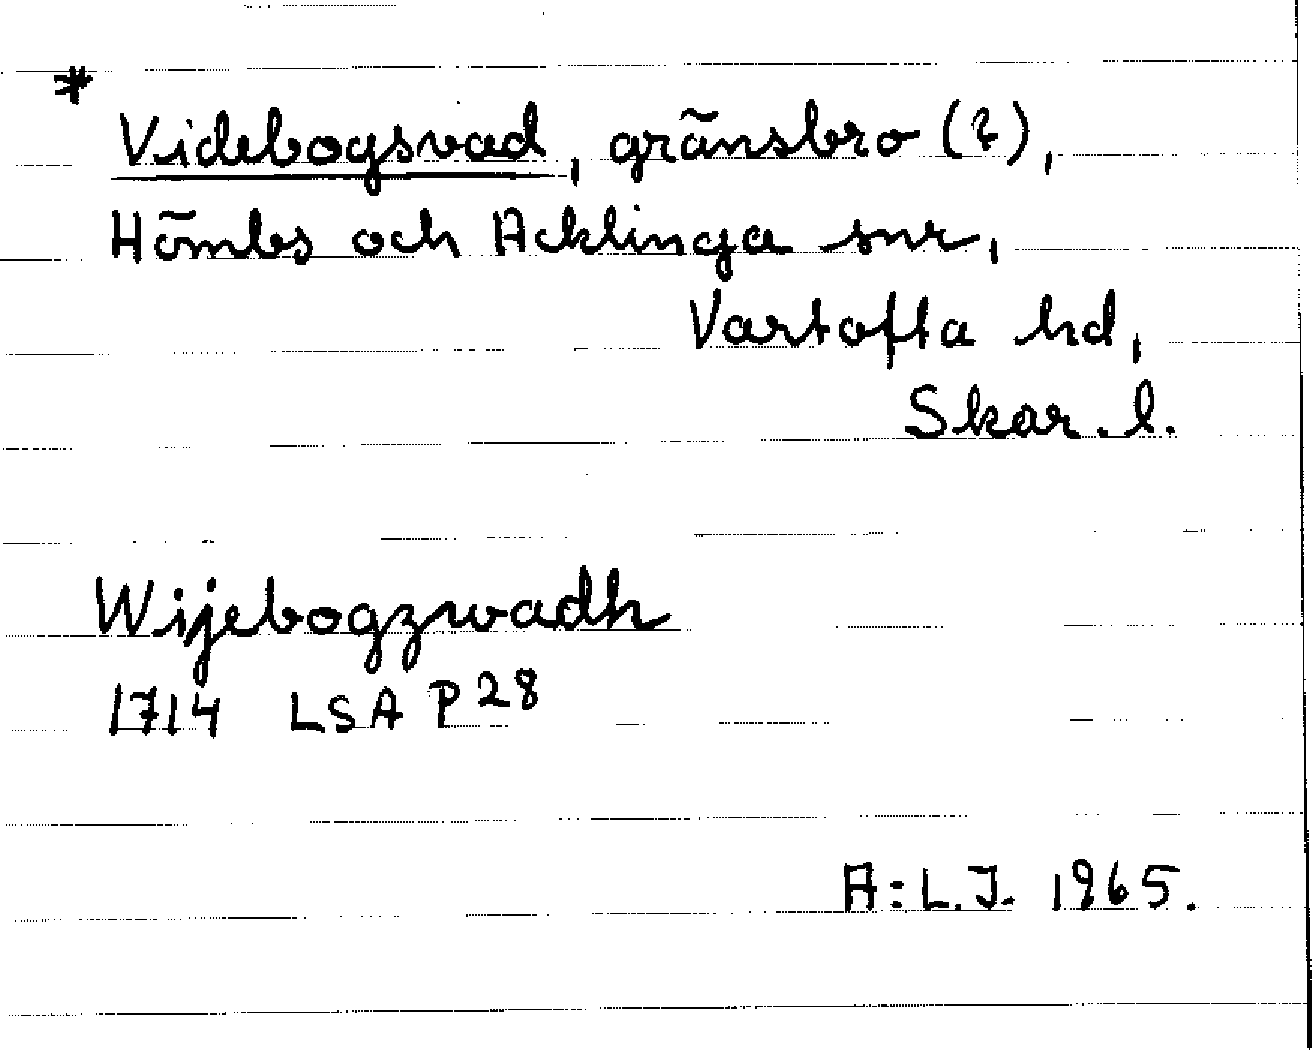 *
Videbogsvad, gränsbro (?),
Hömbs och Acklinga snr,
Vartofta hd,
Skar. l.
Wijebogzwadh
1714 LSA P 28
A:L.J. 1965.